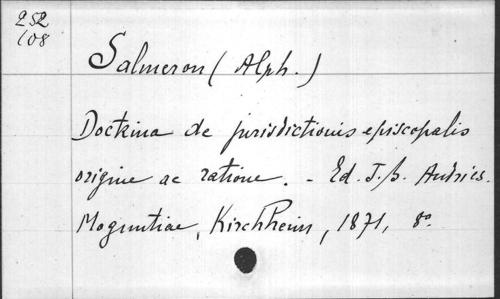 252
108
Salmeron (Alph.)
Doctrina de jurisdictionis episcopalis
origine ac ratione. - Ed. J. B. Andries.
Moguntiae, Kirchheim, 1871, 8°